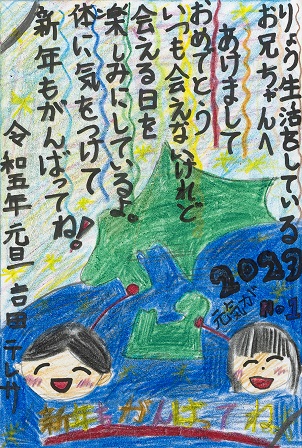 りょう生活をしている
お兄ちゃんへ
あけまして
おめでとう
いつも会えないけれど
会える日を
楽しみにしているよ。
体に気をつけて
新年もがんばってね!
令和五年元旦 吉田テレサ
2023
元気が
no.1
新年もがんばってね